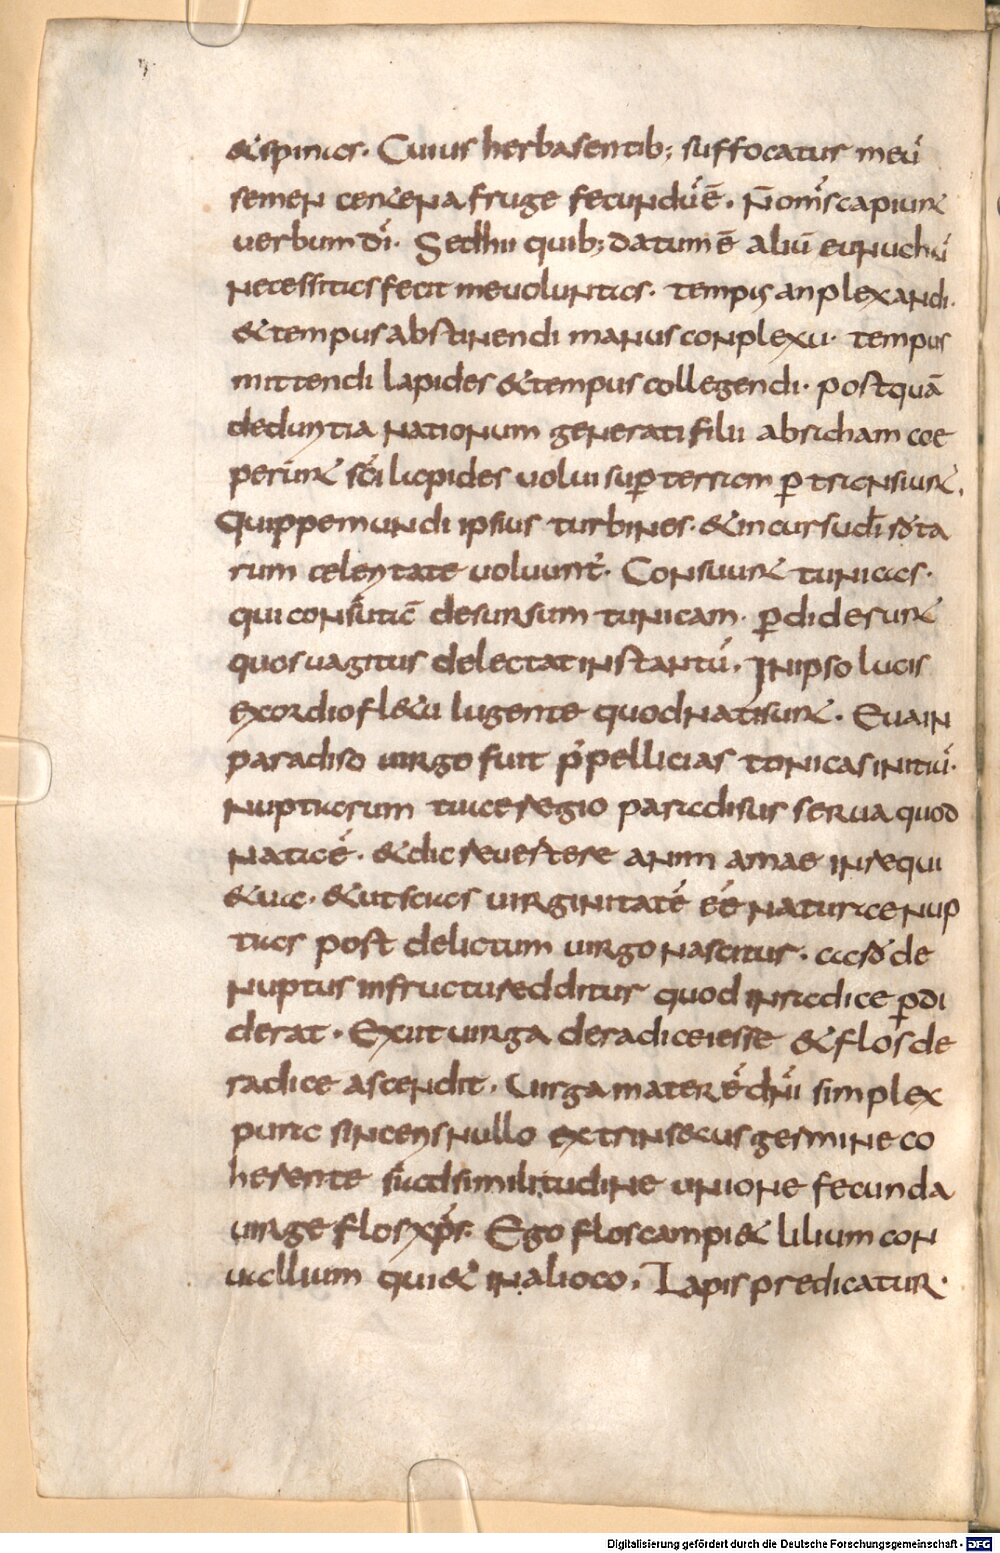 &spinas. Cuius herbasentib; suffocatur meū
semen centena fruge fecundū ē. Non oms capiunt
uerbum dī. Sed hii quib; datum ē aliū eunuchū
necessitas fecit me uoluntas. tempus anplexandi.
& tempus abstinendi manus conplexu. tempus
mittendi lapides & tempus collegendi. postquā
deduritia nationum generati filii abraham coe
perunt sci lapides uolui sup terram p transiunt.
Quippe mundi ipsius turbines. & in cursu dī rota
rum celeritate uoluunt. Consuunt tunicas.
qui consutā desursum tunicam. pdiderunt
quos uagitus delectat instantū. In ipso lucis
exordio fl&u lugente quod nati sunt. Euain
paradiso uirgo fuit p pellicias tonicas initiū.
nuptiarum tua regio paradisus serua quod
nata ē. & dic reuertere anim amae in requi
& ua. & ut scias uirginitatē eē naturae nup
tias post delictum uirgo nascitur. caro de
nuptus in fructu redditur quod in radice pdi
derat. Exiit uirga de radice iesse & flos de
radice ascendit. Uirga mater ē dni simplex
pura sinceris nullo extrinsecus germine co
herente sicut similitudine unione fecunda
uirge flos xps. Ego flos campi & lilium con
uallium qui & in alio co. Lapis predicatur.
Digitalisierung gefördert durch die Deutsche Forschungsgemeinschaft - DFG